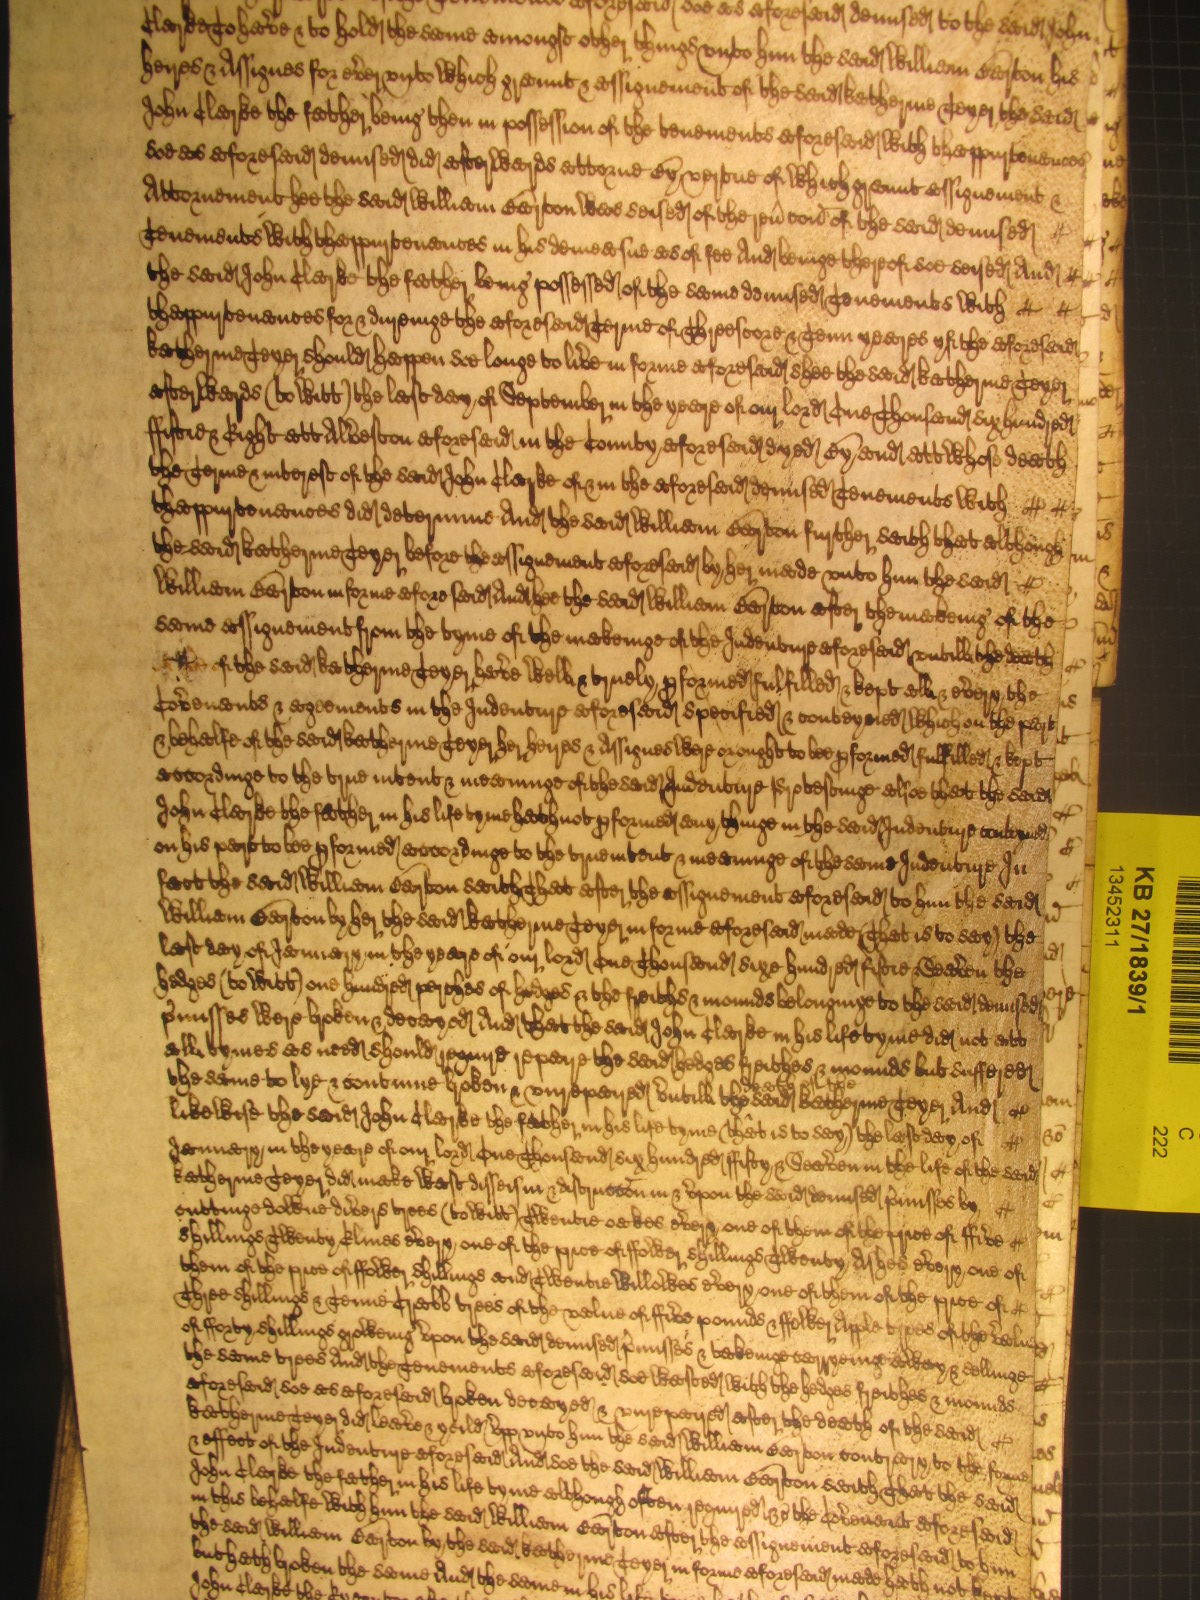 Tenements aforesaid soe as aforesaid demised to the said John
Clarke To have & to hold the same amongst other things unto him the said William Barton his
heires & Assignes for ever unto which graunt & assignement of the said Katherine Teyer the said
John Clarke the father being then in possession of the tenements aforesaid with thappurtenances
soe as aforesaid demised did afterwards attorne By vertue of which graunt assignement &
Attornement hee the said William Barton was seised of the revercon of the said demised
Tenements with thappurtenances in his demeasne as of fee And beinge thereof soe seised And
the said John Clarke the father being possessed of the same demised Tenements with
thappurtenances for & dureinge the aforesaid Terme of Threescore & Tenn yeares yf the aforesaid
Katherine Teyer should happen soe longe to live in forme aforesaid shee the said Katherine Teyer
afterwards (to witt) the last day of September in the yeare of our lord One Thousand six hundred
ffiftie & Eight att Alveston aforesaid in the County aforesaid dyed By and att whose death
the Terme & interest of the said John Clarke of & in the aforesaid demised Tenements with
thappurtenances did determine And the said William Barton further saith that although
the said Katherine Teyer before the assignement aforesaid by her made unto him the said
William Barton in forme aforesaid And hee the said William Barton after the makeing of the
same assignement from the tyme of the makeinge of the Indenture aforesaid untill the death
of the said Katherine Teyer have well & truely pformed fulfilled & kept all & every the
Covenants & agreements in the Indenture aforesaid specified & conteyned which on the part
& behalfe of the said Katherine Teyer her heires & Assignes were or ought to bee pformed fulfilled & kept
accordinge to the true intent & meaninge of the said Indenture Protestinge alsoe that the said
John Clarke the father in his life tyme hath not pformed any thinge in the said Indenture conteyned
on his part to bee pformed accordinge to the true intent & meaninge of the same Indenture In
fact the said William Barton saith That after the assignement aforesaid to him the said
William Barton by her the said Katherine Teyer in forme aforesaid made (That is to say) the
last day of January in the yeare of our lord One Thousand sixe hundred fiftie & Seaven the
hedges (to witt) one hundred perches of hedges & the freithes & mounds belonginge to the said demised
pmisses were broken & decayed And that the said John Clarke in his life tyme did not att
all tymes as need should require repaire the said hedges freithes & mounds but suffered
the same to lye & continue broken & unrepaired untill the death of the said Katherine Teyer And
likewise the said John Clarke the father in his life tyme (that is to say) the last day of
January in the yeare of our lord One Thousand six hundred ffifty & Seaven in the life of the said
Katherine Teyer did make wast disseisin & distruccon in & upon the said demised pmisses by
cuttinge downe divers trees (to witt) Twentie oakes every one of them of the price of ffive
shillings Twenty Elmes every one of the price of ffower shillings Twenty Ashes every one of
them of the price of ffower shillings and Twentie willowes every one of them of the price of
Three shillings & Tenne Crabb trees of the value of ffive pounds & ffower Apple trees of the value
of fforty shillings groweing upon the said demised pmisses & takeinge carryeinge away & sellinge
the same trees And the Tenements aforesaid soe wasted with the hedges freithes & mounds
aforesaid soe as aforesaid broken decayed & unrepaired after the death of the said
Katherine Teyer did leave & yeild upp unto him the said William Barton contrary to the forme
& effect of the Indenture aforesaid And soe the said William Barton saith That the said
John Clarke the father in his life tyme although often required the Covenant aforesaid
in this behalfe with him the said William Barton after the assignement aforesaid to him
the said William Barton by the said Katherine Teyer in forme aforesaid made hath not kept
but hath broken the same And the same in his life
John Clarke the
KB 27/1839/1
13452311
C
222